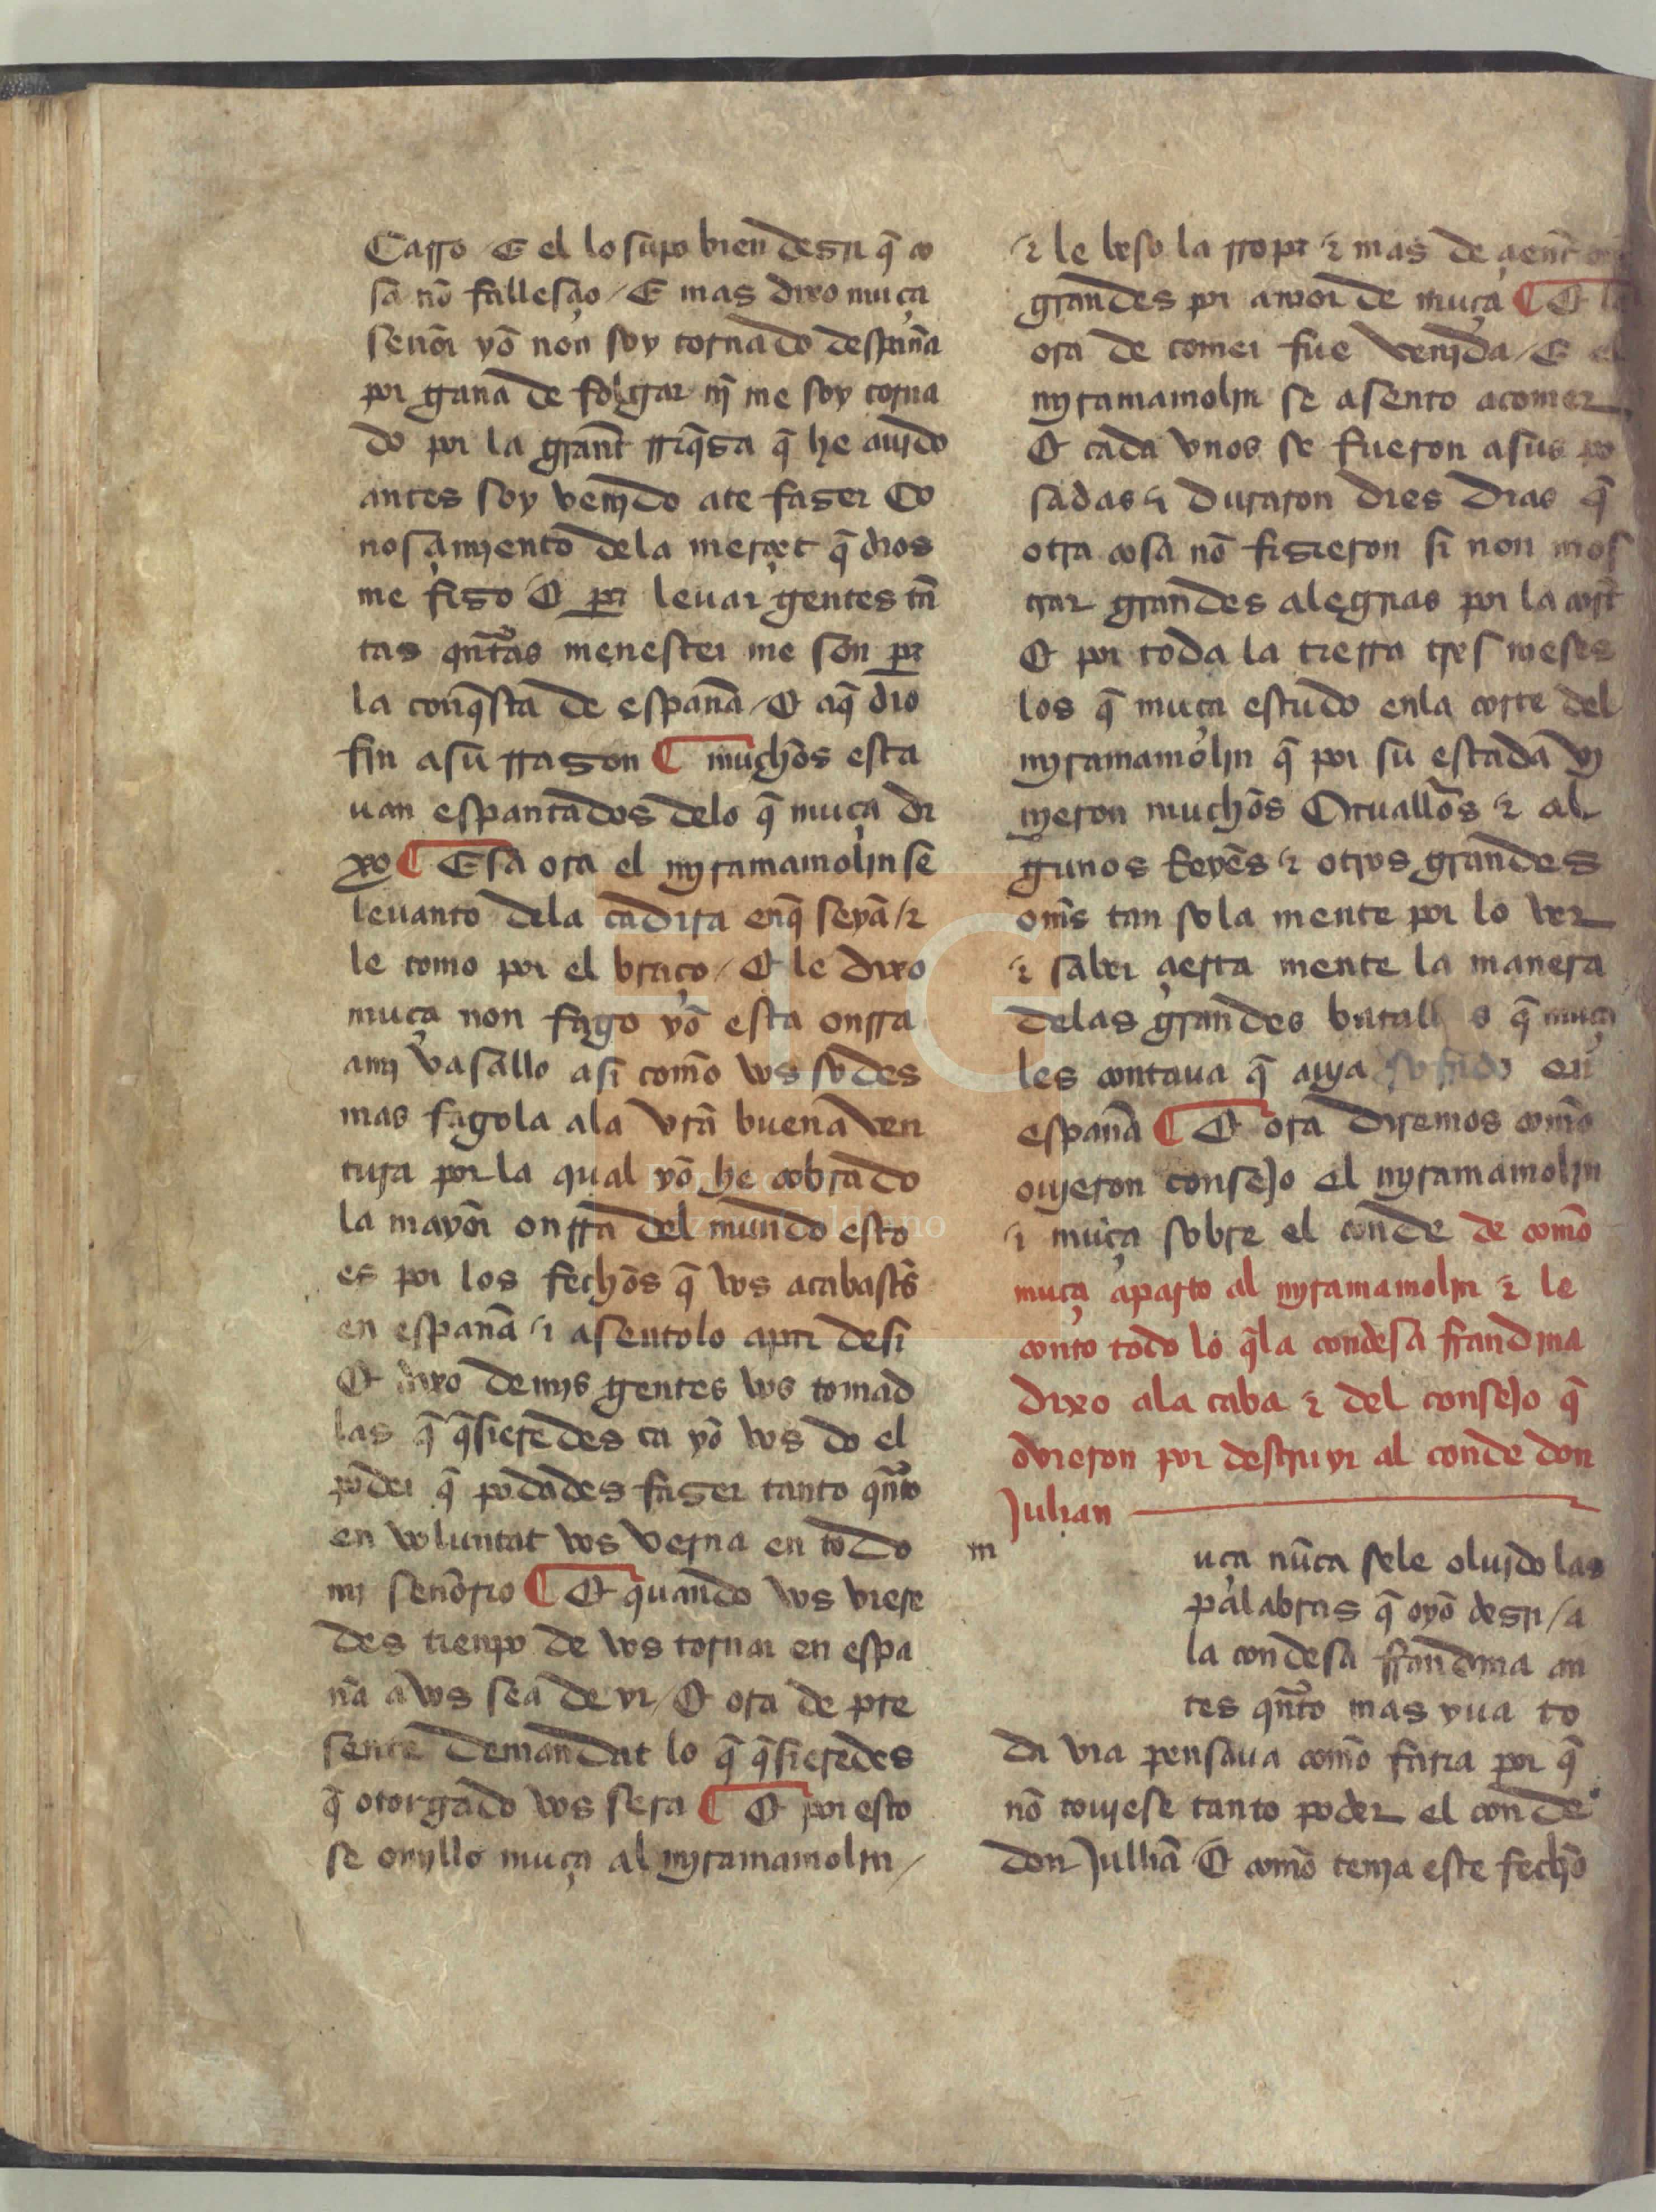 Carro / E el lo supo bien desir q̃ co
sa nõ fallesçio / E mas dixo muça
señor yõ non soy tornado despaña
por gana de folgar nj̃ me soy torna
do por la grant̃ rriq̃sa q̃ he aujdo
antes soy venjdo ate faser Co
nosçimjento dela merçet q̃ dios
me fiso Et pa leuar gentes tñ
tas qñtas menester me son pa
la conq̃sta de españa / Et aq̃ dio
fin asu rrason ¶ muchõs esta
uan espantados delo q̃ muça di
xo ¶ Esa ora el mjramamoljn se
leuanto dela cadira enq̃ seyã / ⁊
le tomo por el braço / Et le dixo
muça non fago yõ esta onrra
amj vasallo asi comõ vos sodes
mas fagola ala vrã buena ven
tura por la qual yõ he cobrado
la mayor onrra del mundo esto
es por los fechõs q̃ vos acabastes
en españa ⁊ asentolo apar desi
Et dixo demjs gentes vos tomad
las q̃ q̃sieredes ca yõ vos do el
poder q̃ podades faser tanto qñto
en voluntat vos verna en todo
mj señorio ¶ Et quando vos viere
des tienpo de vos tornar en espa
ña a vos sea de yr / Et ora de pre
sente demandat lo q̃ q̃sieredes
q̃ otorgado vos sera ¶ Et por esto
se omjllo muça al mjramamolin /
⁊ le beso la rropa ⁊ mas de çient
grandes por amor de muça ¶ Et la
ora de comer fue venjda / E el
mjramamoljn se asento acomer
Et cada vnos se fueron asus po
sadas ⁊ duraron dies dias q̃
otra cosa nõ fisieron si non mos
trar grandes alegrias por la cort
Et por toda la tierra tres meses
los q̃ muça estudo enla corte del
mjramamoljn q̃ por su estada vj
njeron muchõs Cauallõs ⁊ al
gunos Reyẽs ⁊ otros grandes
oms̃ tan sola mente por lo ver
⁊ saber çierta mente la manera
delas grandes batallas q̃ muça
les contaua q̃ auja sofrido en
españa ¶ Et ora diremos comõ
oujeron consejo el mjramamoljn
⁊ muça sobre el conde de comõ
muça aparto al mjramamolin ⁊ le
conto todo lo q̃la condesa frandina
dixo ala caba ⁊ del consejo q̃
oujeron por destruyr al conde don
Julian
m uça nũca sele olujdo las
palabras q̃ oyõ desir / a
la condesa frandina an
tes qñto mas yua to
da via pensaua comõ faria por q̃
nõ toujese tanto poder el conde
don Julliã Et comõ tenja este fechõ